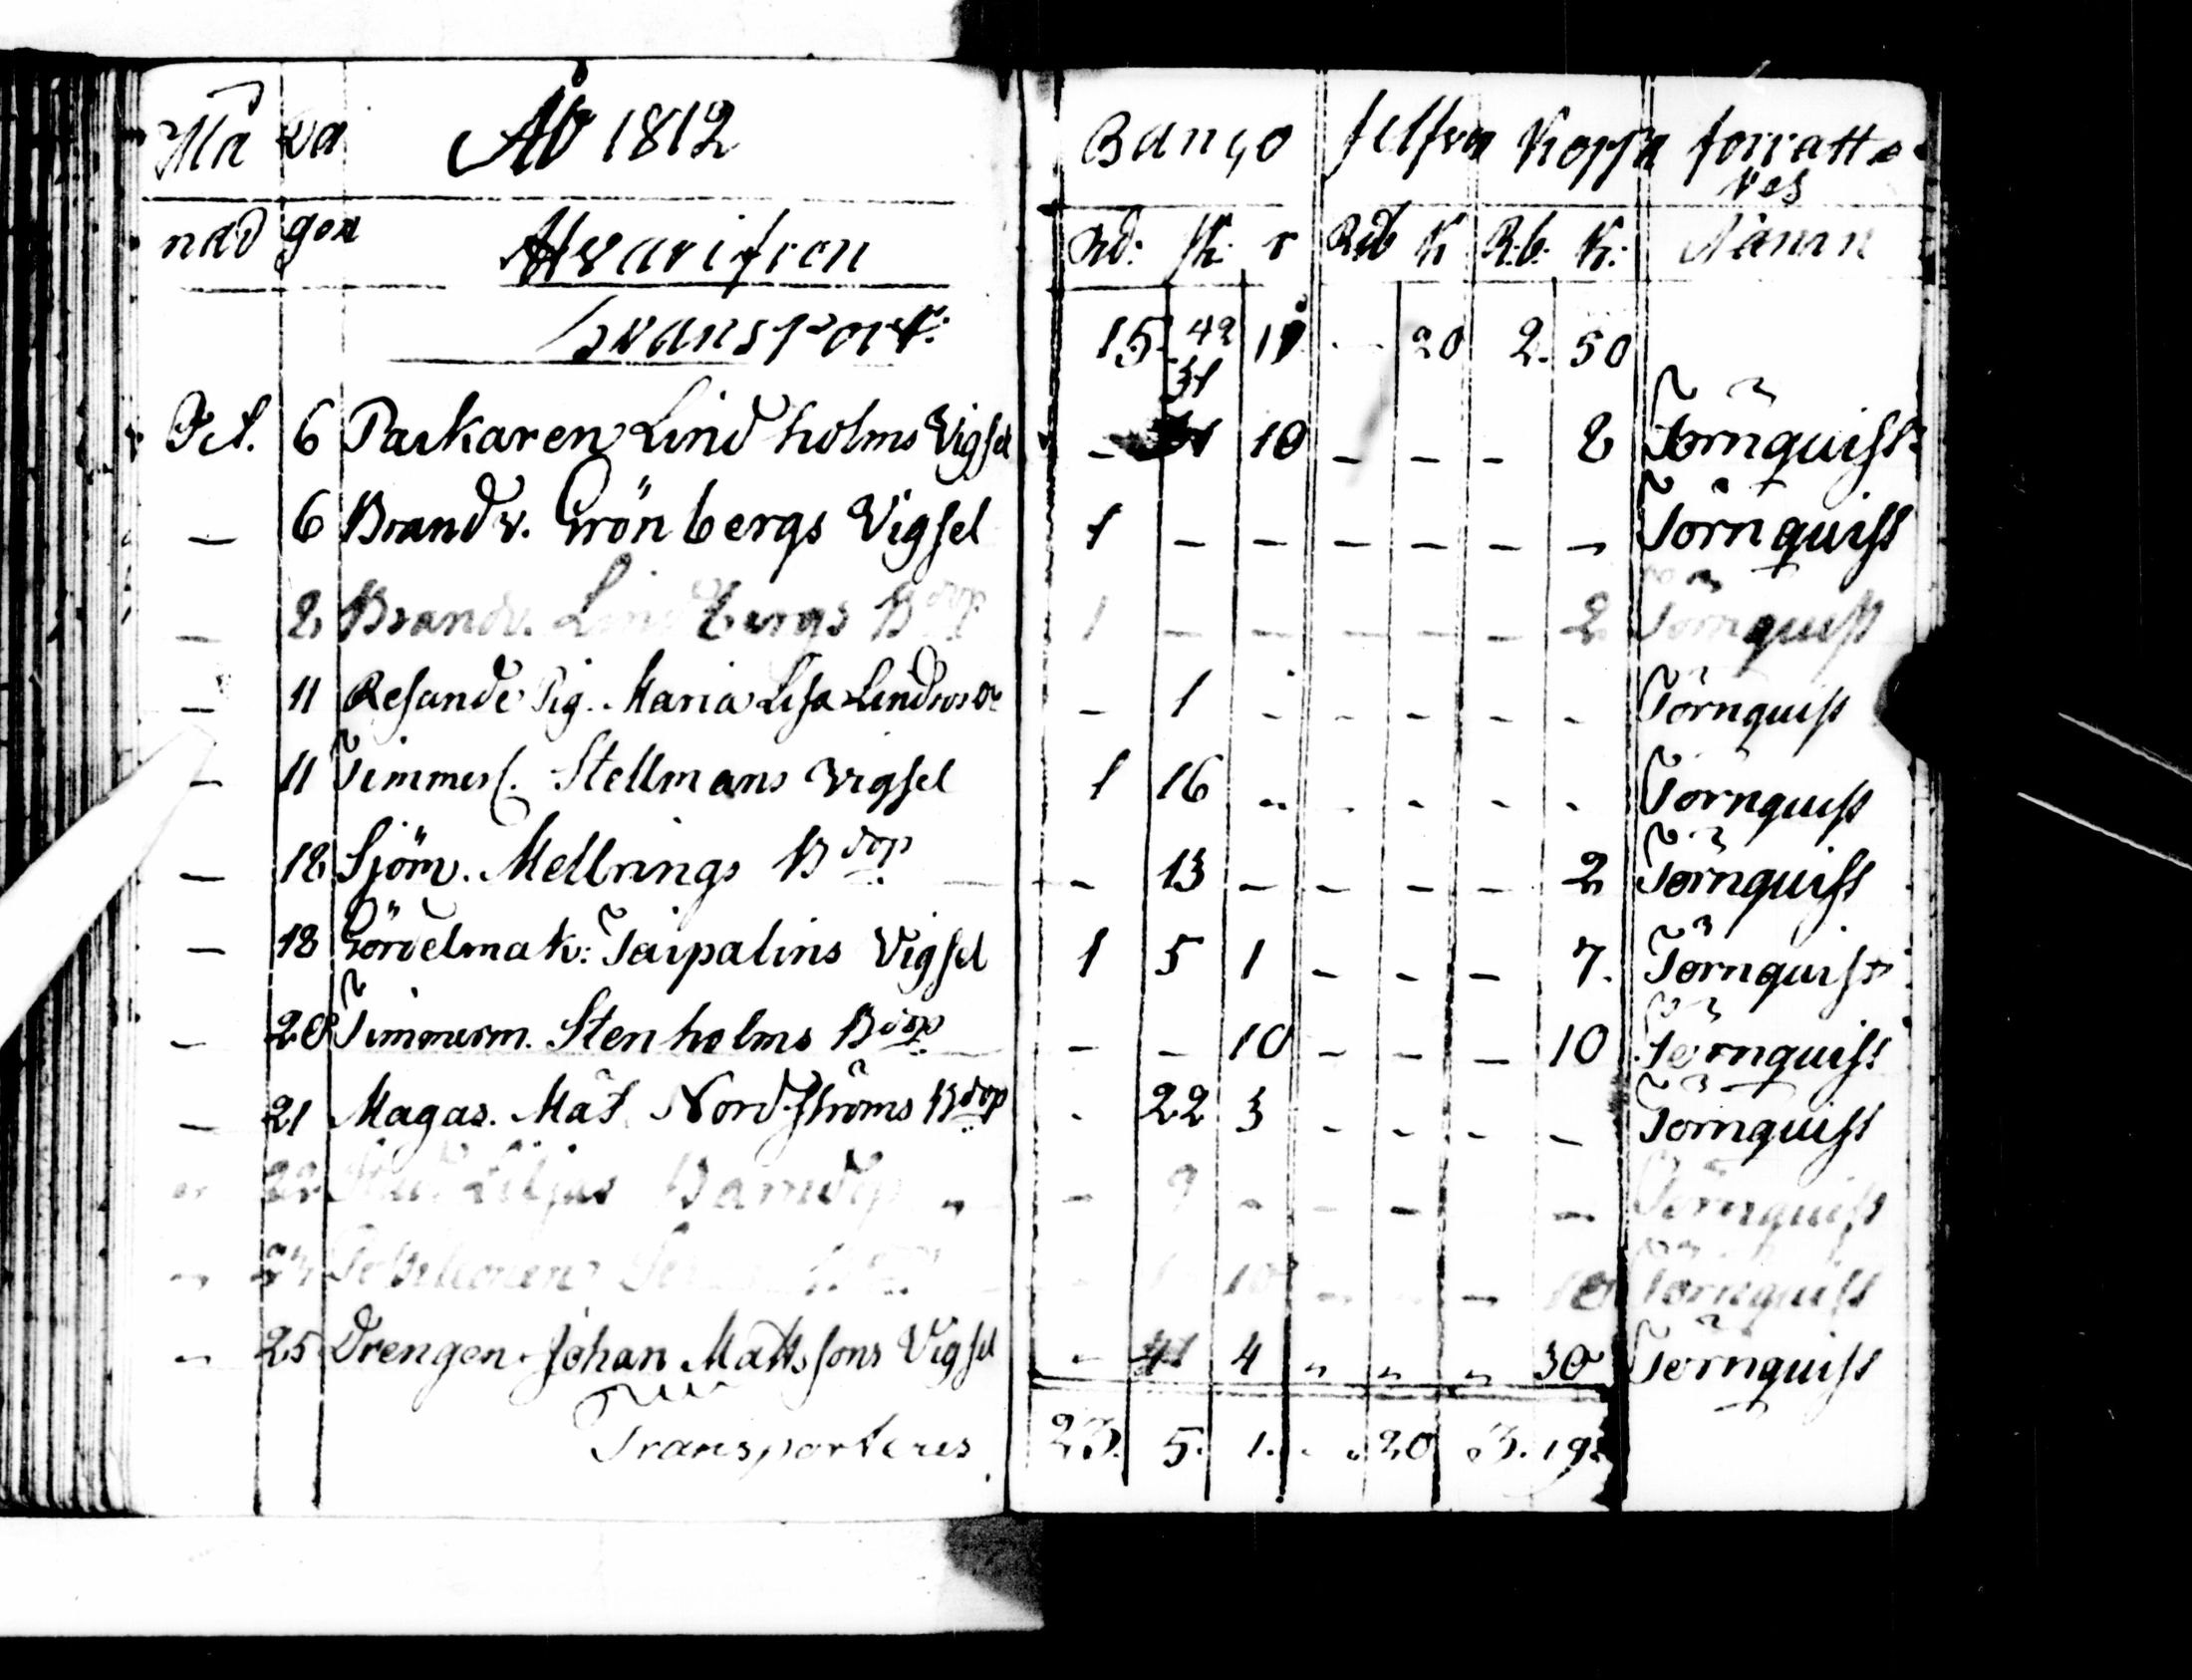 Må da År 1812 Banço silfver Koppa forrätta
res
nad gen Hvarifron Rd: sk: r Rub K R.b. K: Namn
Transport: 15 42 11 - 20 2. 50
31
Oct. 6 Packaren Lindholms Vigsel - 10 - - - 8 Törnquist
— 6 Brandv. Grönbergs Vigsel 1 - - - - - - Törnquist
— 8 Brandv. Lindbergs Bdop 1 - - - - - 2 Törnquist
— 11 Resande Pig. Maria Lisa 1 - - - - - Törnquist
— 11 Timmerk. Stellmans Vigsel 1 16 - - - - - Törnquist
— 18 Sjöm. Mellrings Bdop - 13 - - - - 2 Törnquist
— 18 Gördelmak: Taipalins Vigsel 1 5 1 - - - 7. Törnquist
— 20 Timmerm. Stenholms Bdop - - 10 - - - 10 Törnquist
— 21 Magas. Mät. Nordströms Bdop - 22 3 - - - - Törnquist
" 22 Liljas Barndop " - 9 - - - - Törnquist
" 10 - - - 10 Törnquist
" 25 Drengen Johan Mattssons Vigsel - 41 4 " " " 30 Törnquist
Transporteres 23. 5. 1. . 20 3. 19